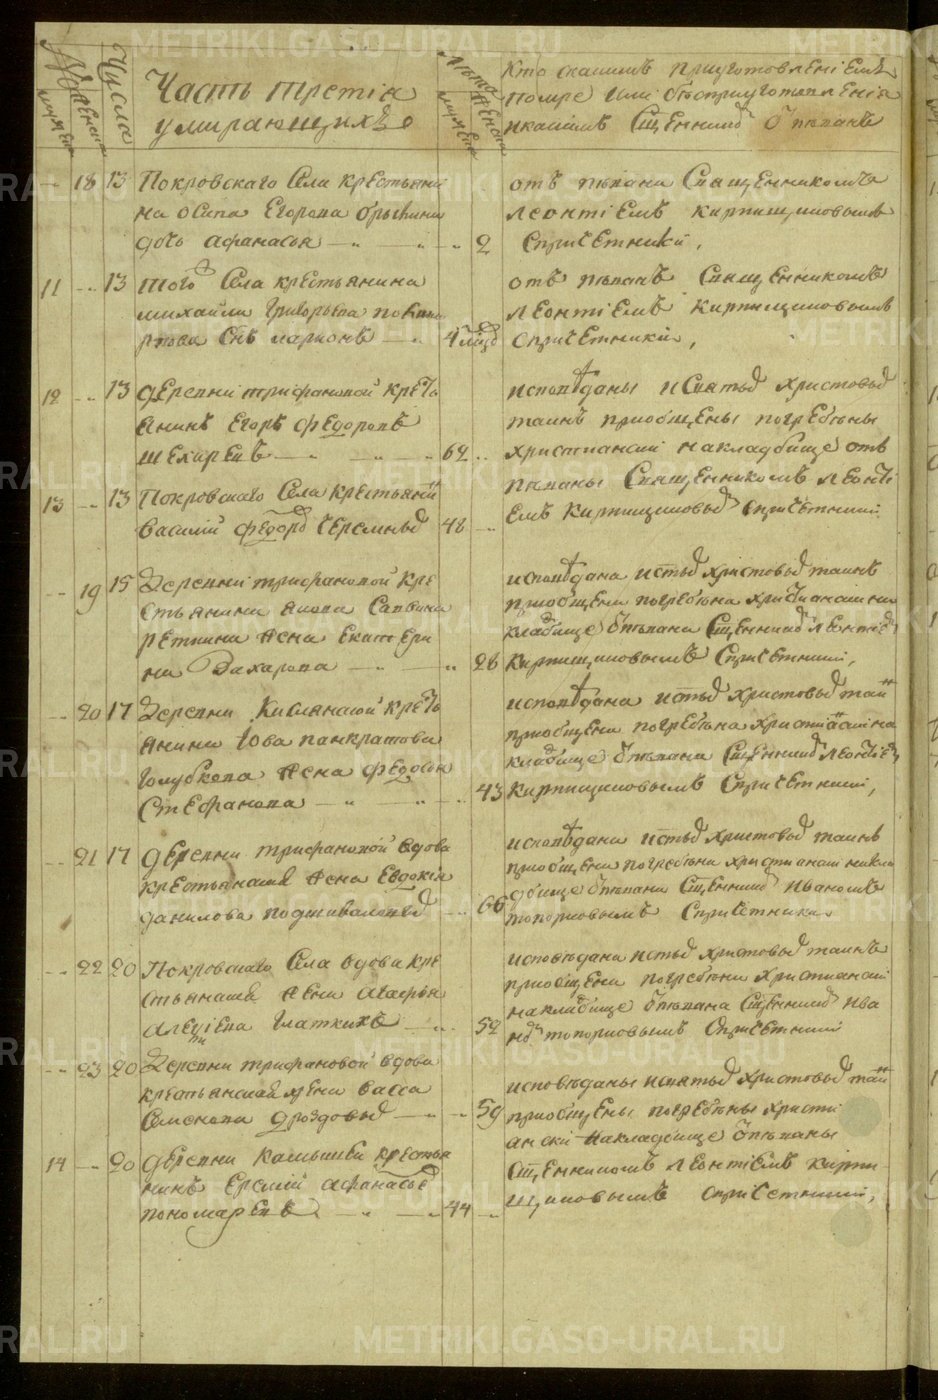 METRIKI.GASO-URAL.RU
Числа
Часть третiя
умирающихъ
Лѣта
Кто какимъ приуготовленiемъ
помре или безприуготовленiя
и какимъ Сщенникомъ
18 13 Покровскаго Села крестьяни
на Осипа Егорова
дочь Афанасья 2
отъ Священникомъ
леонтiемъ кирпищиковымъ
Спричетники,
11 13 того Села крестьянина
михайла Григорьева
Снъ ларионъ 4
отъ Священникомъ
леонтiемъ кирпищиковымъ
Спричетники,
12 13 деревни трифановой крестъ
янинъ Егоръ федоровъ
шехиревъ 62
исповѣданы и Святыхъ христовыхъ
таинъ приобщены погребены
христиански на кладбище отъ
пѣваны Священникомъ леонтi
емъ кирпищиковымъ Спричетники
13 13 Покровскаго Села крестьянинъ
василий федоровъ Черемныхъ 48
19 15 Деревни трифановой кре
стьянина Савина
жена Екатери
на Захарова 28
исповѣдана и стыхъ христовыхъ таинъ
приобщена погребена христиански на
кладбище отпѣвана Сщенникомъ леонтiемъ
кирпищиковымъ Спричетники,
20 17 Деревни Кислянской крестъ
янина Iова панкратова
Голубкова жена федосья
Стефанова 43
исповѣдана и стыхъ христовыхъ таинъ
приобщена погребена христиански на
кладбище отпѣвана Сщенникомъ леонтiемъ
кирпищиковымъ Спричетники,
21 17 деревни трифановой вдова
крестьянская жена Евдокiя
данилова подшиваловыхъ 66
исповѣдана и стыхъ христовыхъ таинъ
приобщена погребена христиански на кла
дбище отпѣвана Сщенникомъ Иваномъ
топорковымъ Спричетники
22 20 Покровскаго Села вдова кре
стьянская жена агафья
алексiева Глаткихъ 52
исповѣдана и стыхъ христовыхъ таинъ
приобщена погребена христиански
на кладбище отпѣвана Сщенникомъ Ива
номъ топорковымъ Спричетники
23 20 Деревни трифановой вдова
крестьянская жена васса
Семенова дроздовыхъ 59
исповѣданы и святыхъ христовыхъ таинъ
приобщены погребены христи
ански на кладбище отпѣваны
Сщенникомъ леонтiемъ кирпи
щиковымъ Спричетники,
14 20 деревни камышевки крестья
нинъ Ермилъ афанасьевъ
пономаревъ 44